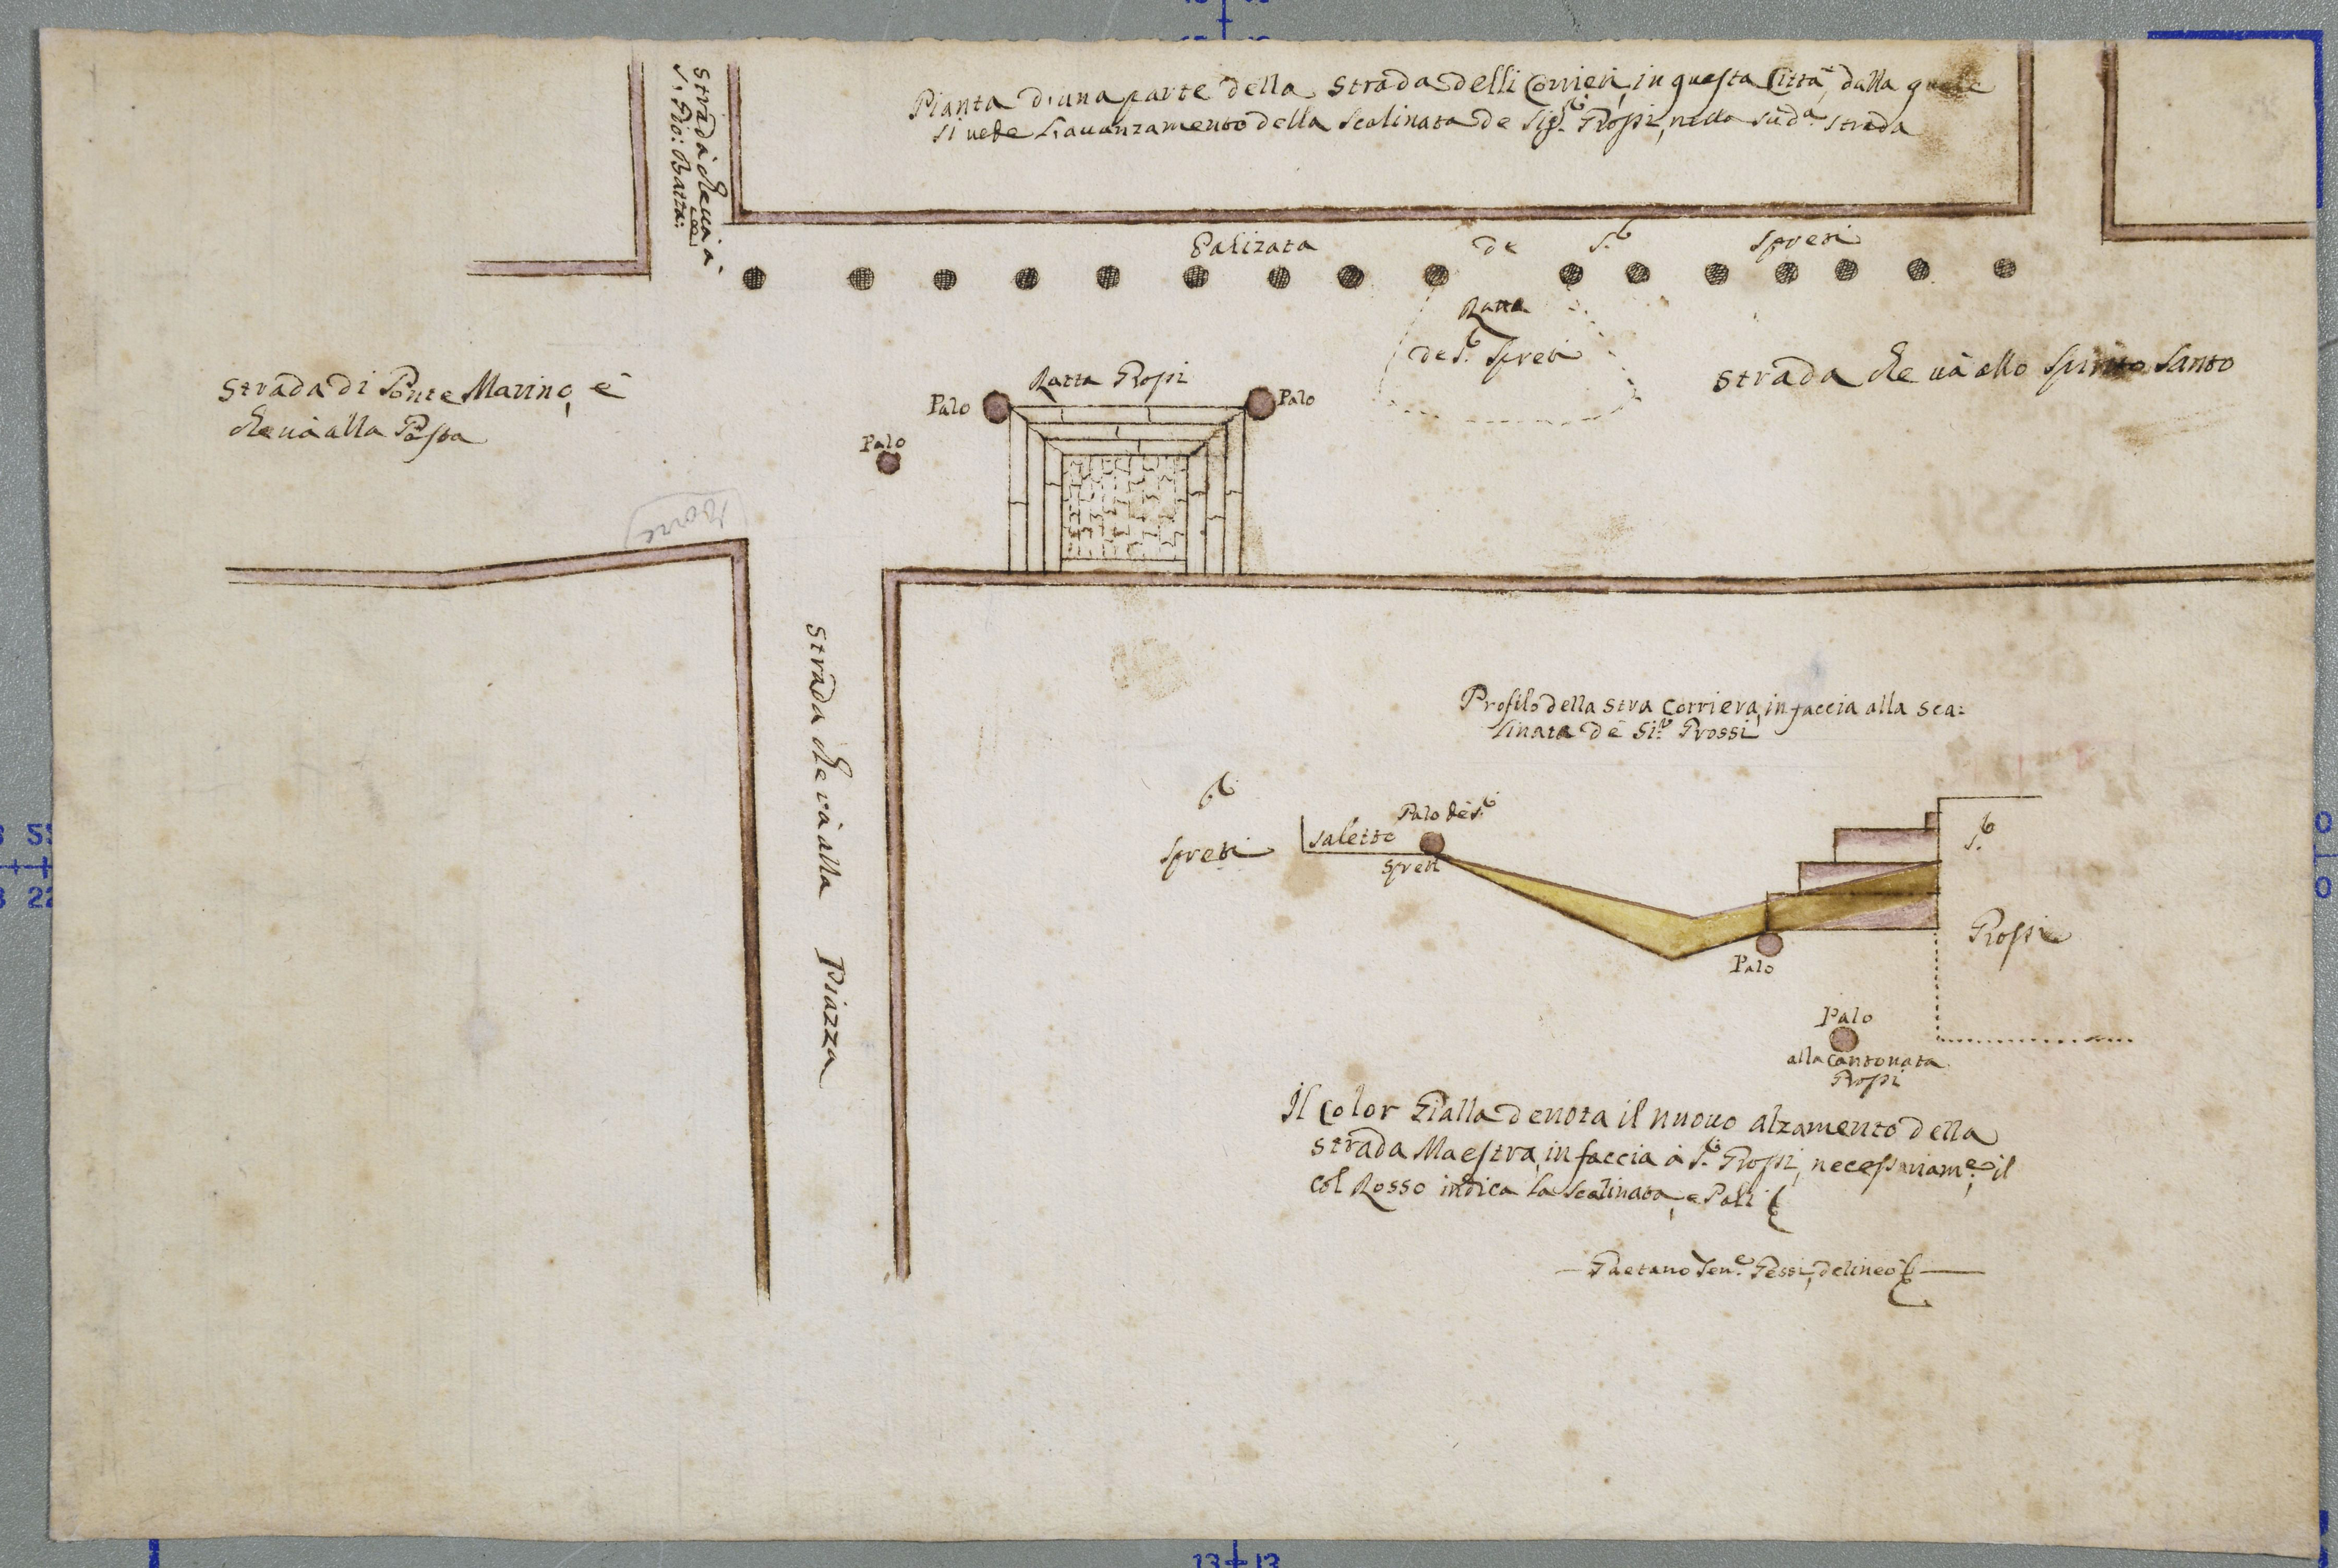 Pianta d'una parte della strada delli Corrieri, in questa Città, dalla quale
si vede l'avanzamento della scalinata de Sigri Rossi, nella sudda strada
strada che và à
S. Gio: Batta:
Palizata de S.ri Spreti
Ratta
de S.ri Spreti
strada di Ponte Marino, è
che và alla Posta
Ratta Rossi
Palo
Palo
Palo
strada che và allo Spirito Santo
strada che và alla Piazza
Profilo della stra Corriera, in faccia alla sca:
linata dè Si.ri Rossi
ri
Spreti
Saletto
Palo dè S.ri
Spreti
S.ri
Rossi
Palo
Palo
alla cantonata
Rossi
Il color Gialla denota il nuovo alzamento della
strada Maestra, in faccia à S.ri Rossi, necessariam.e; il
col Rosso indica la scalinata, e Pali
Gaetano Pessi, delineò